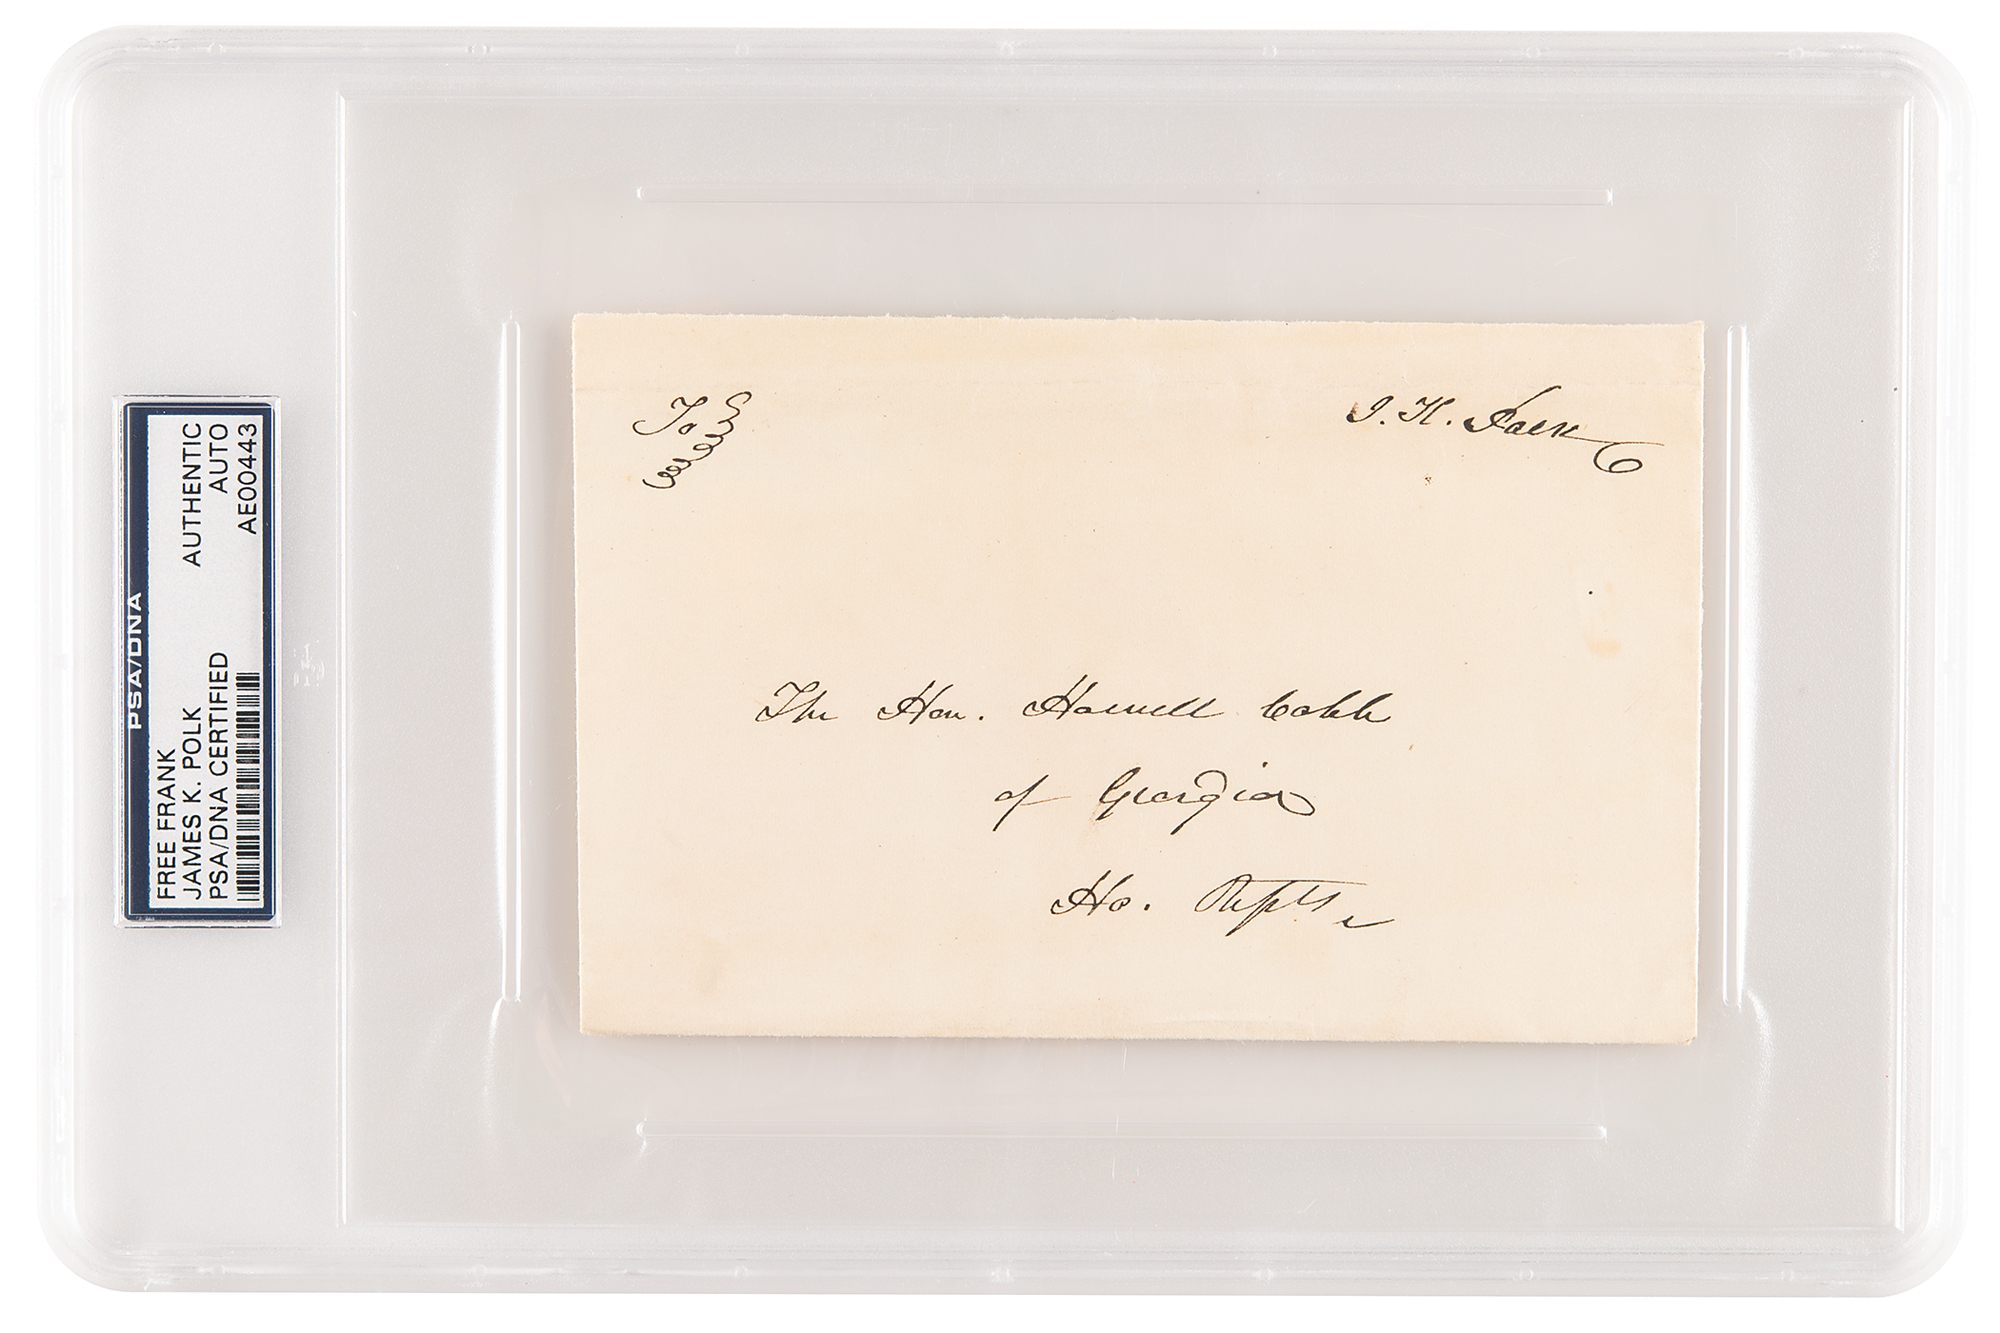 PSA/DNA
FREE FRANK
JAMES K. POLK
PSA/DNA CERTIFIED
AUTHENTIC
AUTO
AE00443
To
J. K. Polk
The Hon. Howell Cobb
of Georgia
Ho. Repts.